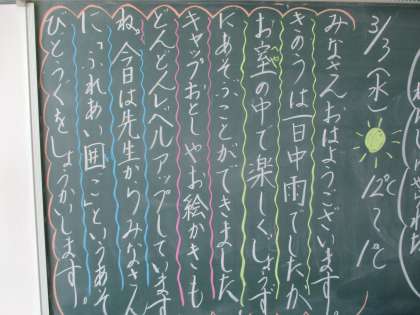 3/3(水)
12℃〜1℃
みなさんおはようございます。
きのうは一日中雨でしたが
お室の中で楽しくじょうず
にあそぶことができました
キャップおとしやお絵かきも
どんどんレベルアップしています
ね。今日は先生からみなさん
に「ふれあい囲こ」というあそ
びどうぐをしょうかいします。